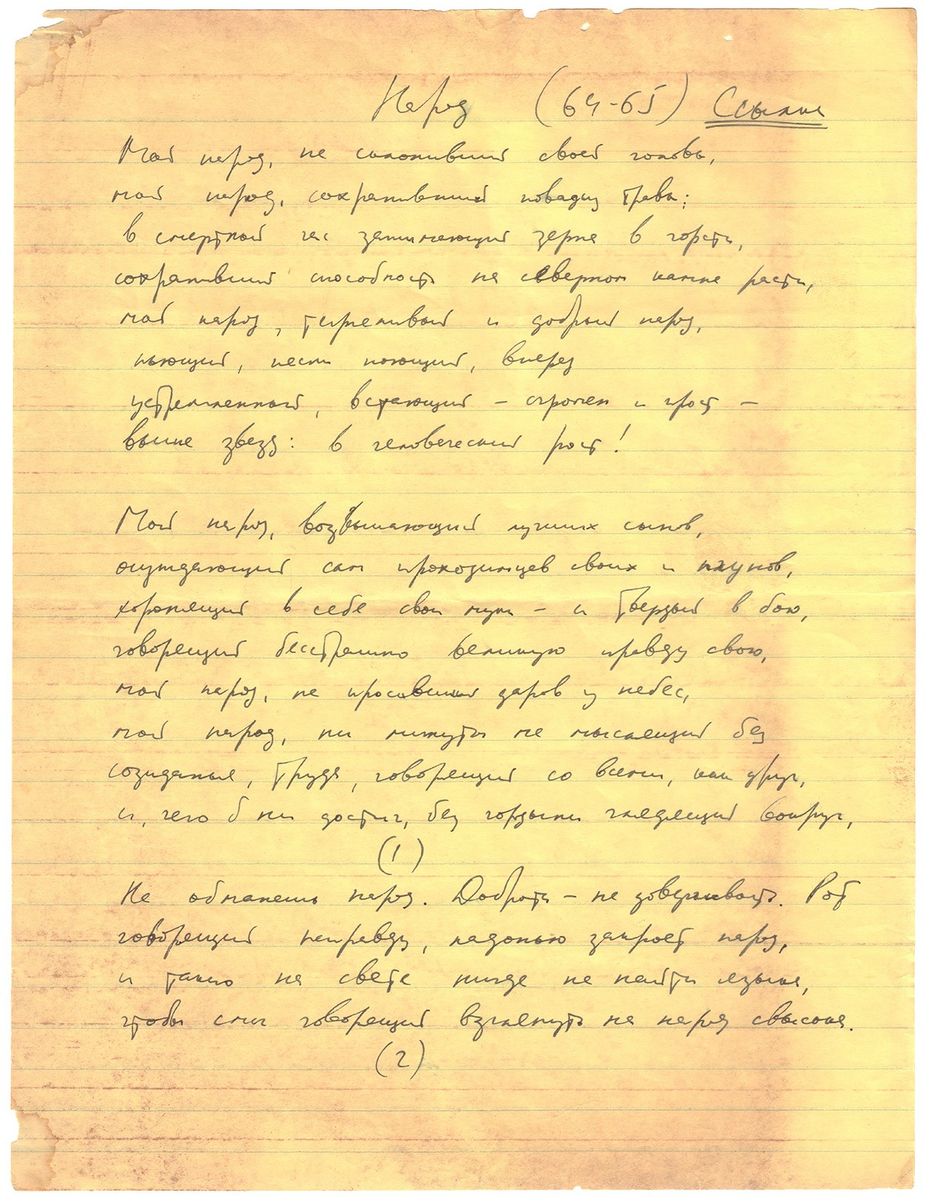 Народ (64-65) Ссылка
Мой народ, не склонивший своей головы,
мой народ, сохранивший повадку травы:
в смертный час зажимающий зерна в горсти,
сохранивший способность на северном камне расти,
мой народ, терпеливый и добрый народ,
пьющий, песни поющий, вперед
устремленный, встающий – огромен и прост –
выше звезд: в человеческий рост!
Мой народ, возвышающий лучших сынов,
осуждающий сам проходимцев своих и лгунов,
хоронящий в себе свои муки – и твердый в бою,
говорящий бесстрашно великую правду свою,
мой народ, не просивший даров у небес,
мой народ, ни минуты не мыслящий без
созиданья, труда, говорящий со всеми, как друг,
и, чего б ни достиг, без гордыни глядящий вокруг,
(1)
Не обманешь народ. Доброта – не доверчивость. Рот
говорящий неправду, ладонью закроет народ,
и такого на свете нигде не найти языка,
чтобы смог говорящий взглянуть на народ свысока.
(2)